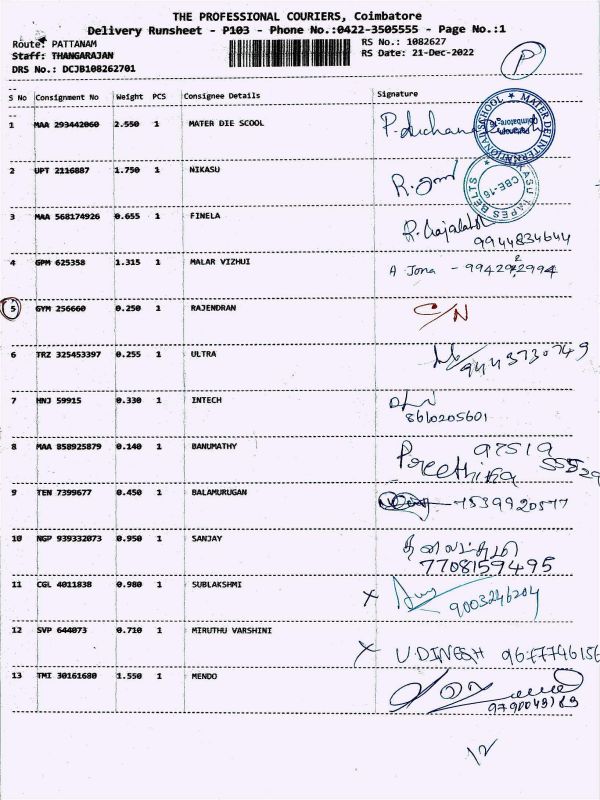 THE PROFESSIONAL COURIERS, Coimbatore
Delivery Runsheet - P103 - Phone No.:0422-3505555 - Page No.:1
Route: PATTANAM
RS No.: 1082627
Staff: THANGARAJAN
RS Date: 21-Dec-2022
DRS No.: DCJB108262701
P
S No Consignment No Weight PCS Consignee Details Signature
1 MAA 293442060 2.550 1 MATER DIE SCOOL
MATER DEI INTERNATIONAL SCHOOL
2 UPT 2116887 1.750 1 NIKASU
TAPES BELTS CBE-16
3 MAA 568174926 0.655 1 FINELA
9944834644
4 GPM 625358 1.315 1 MALAR VIZHUI A Jona -
5 GYM 256660 0.250 1 RAJENDRAN C/N
6 TRZ 325453397 0.255 1 ULTRA 9443730749
7 HNJ 59915 0.330 1 INTECH
8610205601
8 MAA 858925879 0.140 1 BANUMATHY Preethika 97519
55529
9 TEN 7399677 0.450 1 BALAMURUGAN 7539920577
10 NGP 939332073 0.950 1 SANJAY
7708159495
11 CGL 4011838 0.980 1 SUBLAKSHMI X
9003246204
12 SVP 644073 0.710 1 MIRUTHU VARSHINI X U DINESH 9677746156
13 TMI 30161680 1.550 1 MENDO
9790049189
12